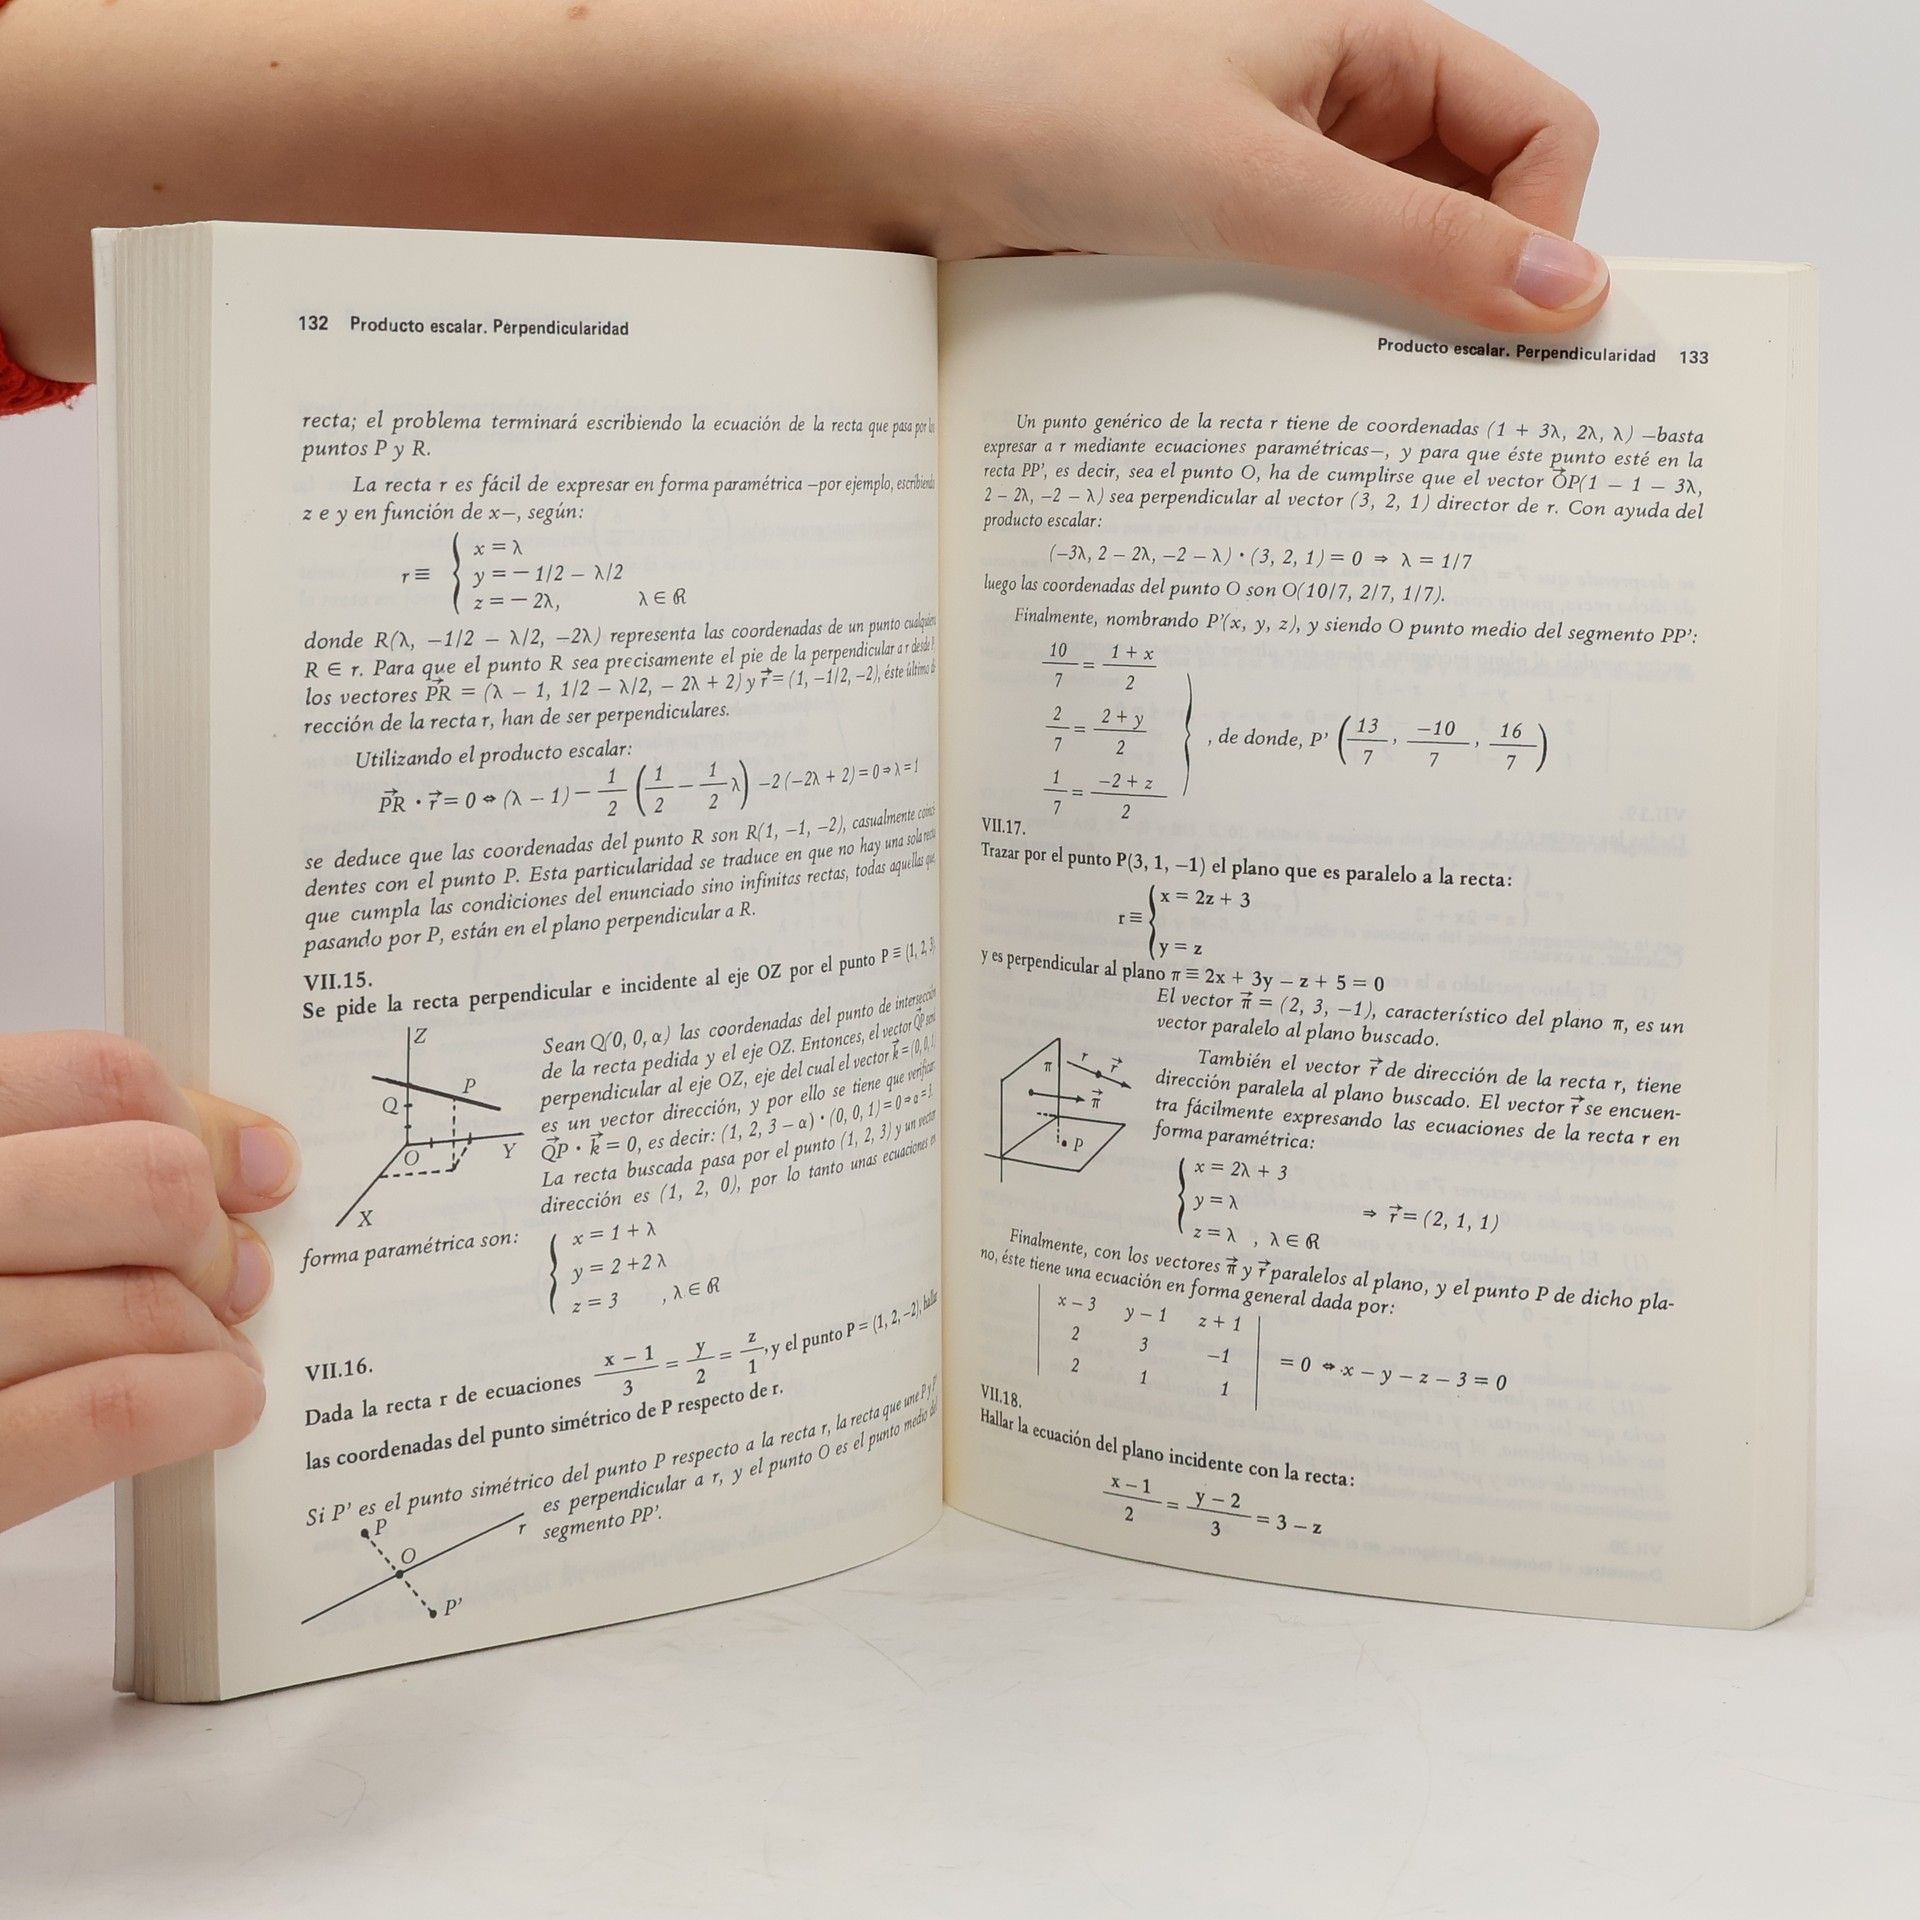 132 Producto escalar. Perpendicularidad
recta; el problema terminará escribiendo la ecuación de la recta que pasa por los
puntos P y R.
La recta r es fácil de expresar en forma paramétrica —por ejemplo, escribiendo
z e y en función de x—, según:
x = λ
r ≡ y = − 1/2 − λ/2
z = − 2λ, λ ∈ ℝ
donde R(λ, −1/2 − λ/2, −2λ) representa las coordenadas de un punto cualquiera
R ∈ r. Para que el punto R sea precisamente el pie de la perpendicular a r desde P,
los vectores PR⃗ = (λ − 1, 1/2 − λ/2, − 2λ + 2) y r⃗ = (1, −1/2, −2), éste último di-
rección de la recta r, han de ser perpendiculares.
Utilizando el producto escalar:
PR⃗ · r⃗ = 0 ⇔ (λ − 1) − 1/2 (1/2 − 1/2 λ) −2 (−2λ + 2) = 0 ⇒ λ = 1
se deduce que las coordenadas del punto R son R(1, −1, −2), casualmente coinci-
dentes con el punto P. Esta particularidad se traduce en que no hay una sola recta
que cumpla las condiciones del enunciado sino infinitas rectas, todas aquellas que,
pasando por P, están en el plano perpendicular a R.
VII.15.
Se pide la recta perpendicular e incidente al eje OZ por el punto P ≡ (1, 2, 3)
Z
P
Q
O
Y
X
Sean Q(0, 0, α) las coordenadas del punto de intersección
de la recta pedida y el eje OZ. Entonces, el vector QP⃗ será
perpendicular al eje OZ, eje del cual el vector k⃗ = (0, 0, 1)
es un vector dirección, y por ello se tiene que verificar:
QP⃗ · k⃗ = 0, es decir: (1, 2, 3 − α) · (0, 0, 1) = 0 ⇒ α = 1.
La recta buscada pasa por el punto (1, 2, 3) y un vector
dirección es (1, 2, 0), por lo tanto unas ecuaciones en
forma paramétrica son:
x = 1 + λ
y = 2 +2 λ
z = 3 , λ ∈ ℝ
VII.16.
Dada la recta r de ecuaciones x − 1/3 = y/2 = z/1, y el punto P = (1, 2, −2), hallar
las coordenadas del punto simétrico de P respecto de r.
Si P' es el punto simétrico del punto P respecto a la recta r, la recta que une P y P'
es perpendicular a r, y el punto O es el punto medio del
segmento PP'.
P
O
r
P'
Producto escalar. Perpendicularidad 133
Un punto genérico de la recta r tiene de coordenadas (1 + 3λ, 2λ, λ) —basta
expresar a r mediante ecuaciones paramétricas—, y para que éste punto esté en la
recta PP', es decir, sea el punto O, ha de cumplirse que el vector OP⃗(1 − 1 − 3λ,
2 − 2λ, −2 − λ) sea perpendicular al vector (3, 2, 1) director de r. Con ayuda del
producto escalar:
(−3λ, 2 − 2λ, −2 − λ) · (3, 2, 1) = 0 ⇒ λ = 1/7
luego las coordenadas del punto O son O(10/7, 2/7, 1/7).
Finalmente, nombrando P'(x, y, z), y siendo O punto medio del segmento PP':
10/7 = 1 + x/2
2/7 = 2 + y/2 , de donde, P' (13/7, −10/7, 16/7)
1/7 = −2 + z/2
VII.17.
Trazar por el punto P(3, 1, −1) el plano que es paralelo a la recta:
x = 2z + 3
r ≡
y = z
y es perpendicular al plano π ≡ 2x + 3y − z + 5 = 0
El vector π⃗ = (2, 3, −1), característico del plano π, es un
vector paralelo al plano buscado.
También el vector r⃗ de dirección de la recta r, tiene
dirección paralela al plano buscado. El vector r⃗ se encuen-
tra fácilmente expresando las ecuaciones de la recta r en
forma paramétrica:
π
r
r⃗
π⃗
P
x = 2λ + 3
y = λ ⇒ r⃗ = (2, 1, 1)
z = λ , λ ∈ ℝ
Finalmente, con los vectores π⃗ y r⃗ paralelos al plano, y el punto P de dicho pla-
no, éste tiene una ecuación en forma general dada por:
x − 3 y − 1 z + 1
2 3 −1 = 0 ⇔ x − y − z − 3 = 0
2 1 1
VII.18.
Hallar la ecuación del plano incidente con la recta:
x − 1/2 = y − 2/3 = 3 − z